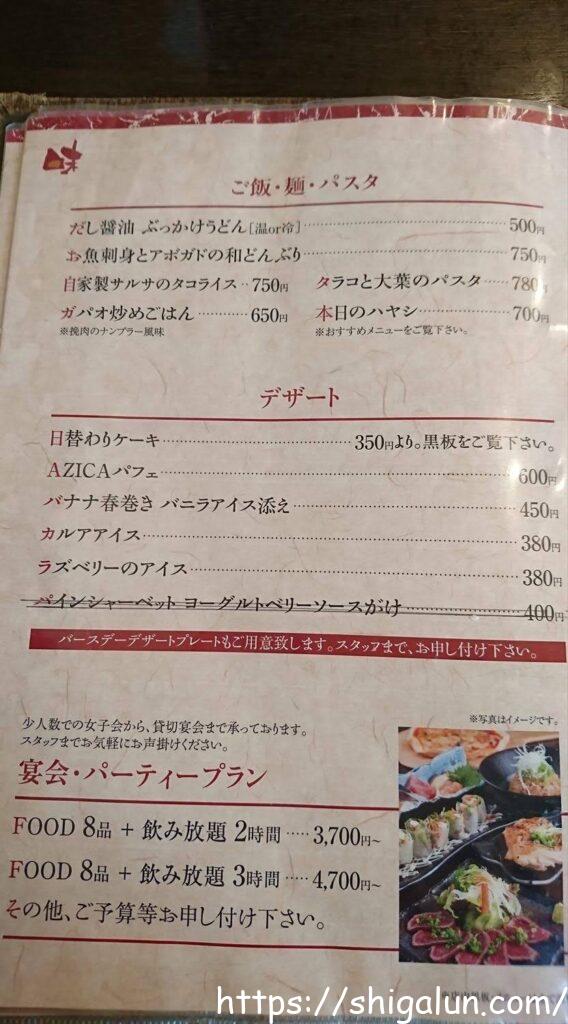 味
ご飯・麺・パスタ
だし醤油 ぶっかけうどん[温or冷] 500円
お魚刺身とアボガドの和どんぶり 750円
自家製サルサのタコライス 750円 タラコと大葉のパスタ 780円
ガパオ炒めごはん 650円 本日のハヤシ 700円
※挽肉のナンプラー風味 ※おすすめメニューをご覧下さい。
デザート
日替わりケーキ 350円より。黒板をご覧下さい。
AZICAパフェ 600円
バナナ春巻き バニラアイス添え 450円
カルアアイス 380円
ラズベリーのアイス 380円
パインシャーベット ヨーグルトベリーソースがけ 400円
バースデーデザートプレートもご用意致します。スタッフまで、お申し付け下さい。
※写真はイメージです。
少人数での女子会から、貸切宴会まで承っております。
スタッフまでお気軽にお声掛けください。
宴会・パーティープラン
FOOD 8品 + 飲み放題 2時間 ····· 3,700円~
FOOD 8品 + 飲み放題 3時間 ····· 4,700円~
その他、ご予算等お申し付け下さい。
https://shigalun.com/